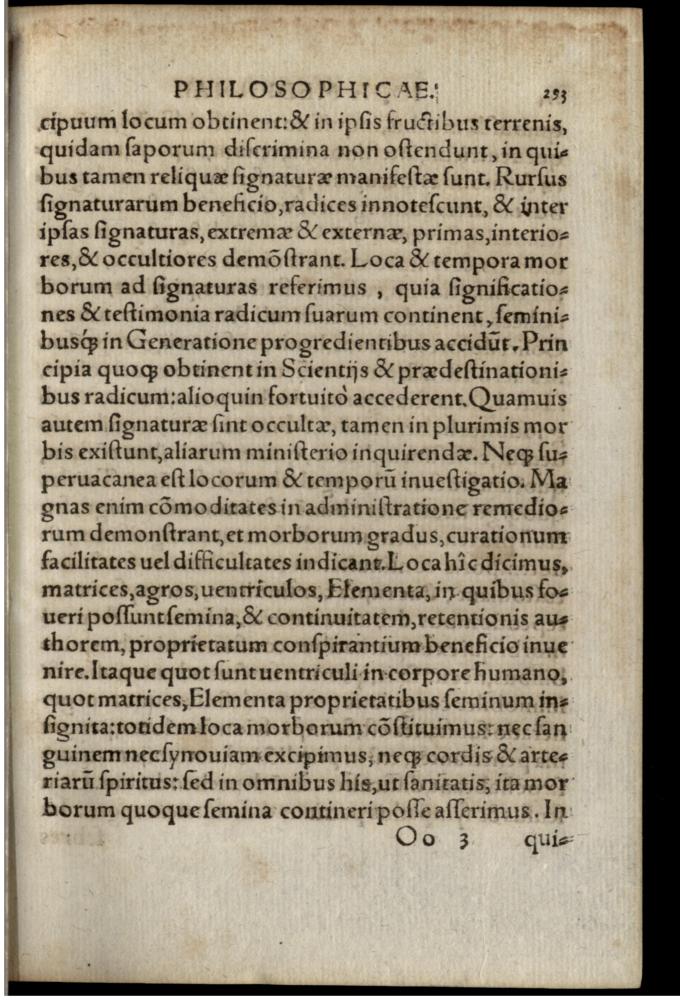 PHILOSOPHICAE. 293
cipuum locum obtinent:& in ipſis fructibus terrenis,
quidam ſaporum diſcrimina non oſtendunt, in qui⸗
bus tamen reliquæ ſignaturæ manifeſtæ ſunt. Rurſus
ſignaturarum beneficio,radices innoteſcunt, & inter
ipſas ſignaturas, extremæ & externæ, primas,interio⸗
res,& occultiores demõſtrant. Loca & tempora mor
borum ad ſignaturas referimus , quia ſignificatio⸗
nes & teſtimonia radicum ſuarum continent, ſemini⸗
busq́ꝫ in Generatione progredientibus accidũt. Prin
cipia quoqꝫ obtinent in Scientijs & prædeſtinationi⸗
bus radicum:alioquin fortuitò accederent. Quamuis
autem ſignaturæ ſint occultæ, tamen in plurimis mor
bis exiſtunt,aliarum miniſterio inquirendæ. Neqꝫ ſu⸗
peruacanea eſt locorum & temporũ inueſtigatio. Ma
gnas enim cõmoditates in adminiſtratione remedio⸗
rum demonſtrant,et morborum gradus, curationum
facilitates uel difficultates indicant. Loca hîc dicimus,
matrices,agros,uentriculos, Elementa, in quibus fo⸗
ueri poſſunt ſemina,& continuitatem,retentionis au⸗
thorem, proprietatum conſpirantium beneficio inue
nire. Itaque quot ſunt uentriculi in corpore humano,
quot matrices, Elementa proprietatibus ſeminum in⸗
ſignita:totidem loca morborum cõſtituimus: nec ſan
guinem nec ſynouiam excipimus, neqꝫ cordis & arte⸗
riarũ ſpiritus: ſed in omnibus his,ut ſanitatis, ita mor
borum quoque ſemina contineri poſſe aſſerimus. In
Oo 3 qui⸗